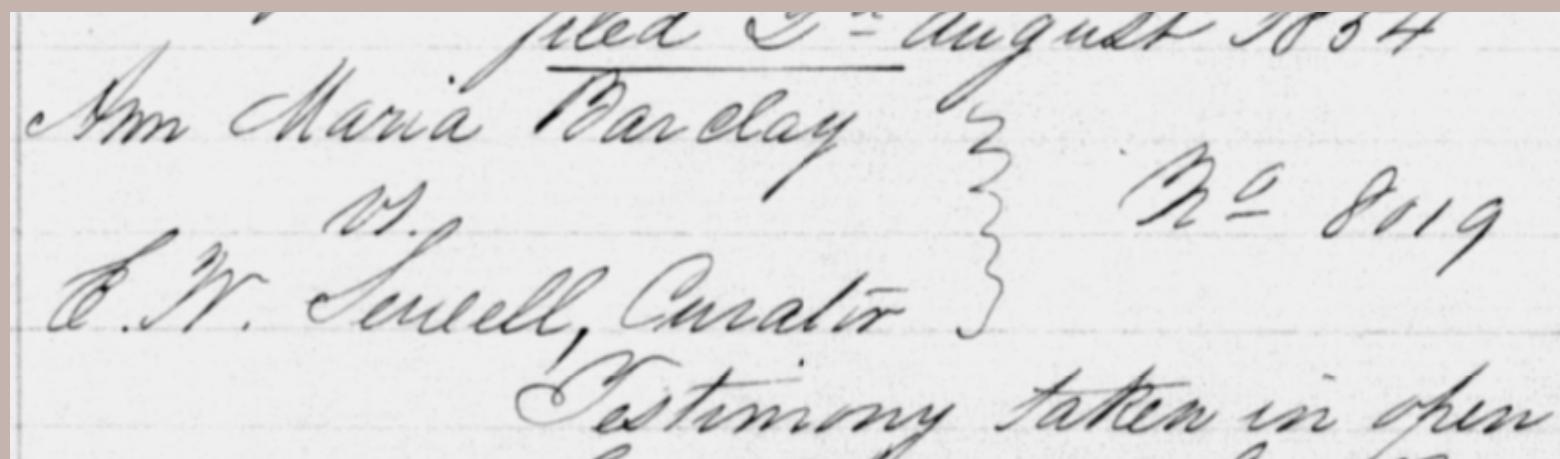 filed 2d August 1854
Ann Maria Barclay
vs.
E. W. Sewell, Curator
No 8019
Testimony taken in open